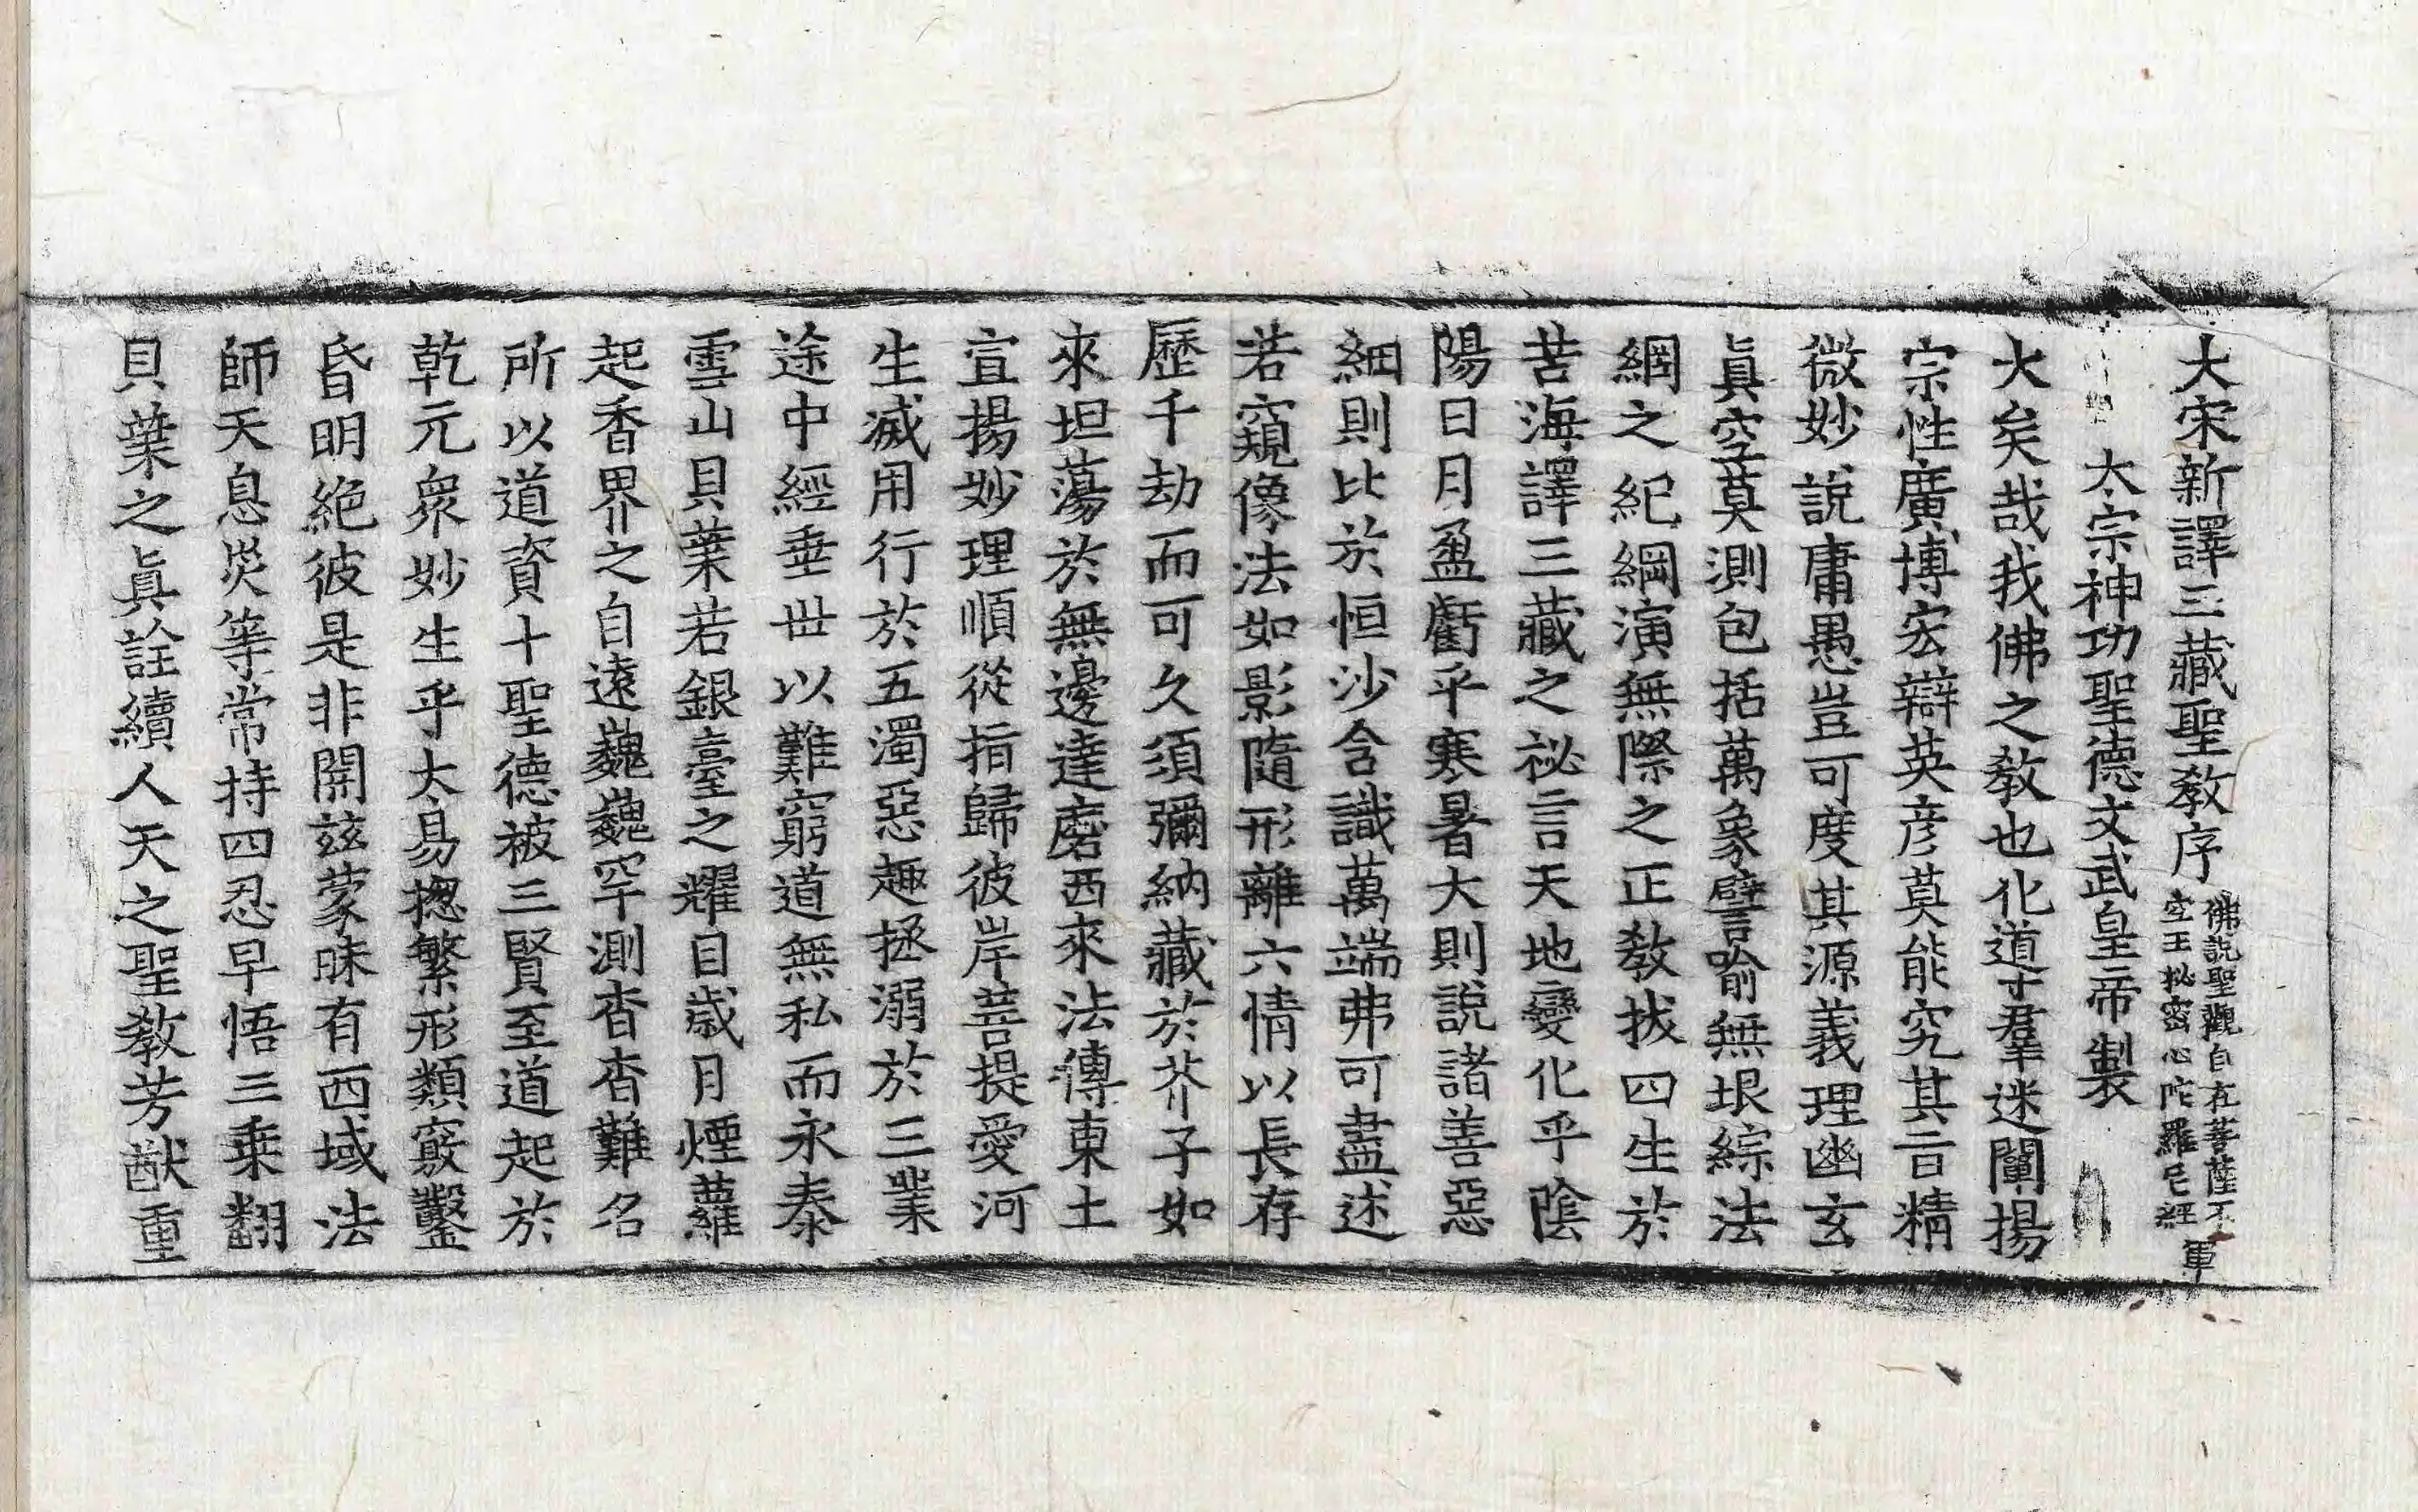 大宋新譯三藏聖教序
佛說聖觀自在菩薩不
空王祕密心陀羅尼經
軍
太宗神功聖德文武皇帝製
大矣哉我佛之教也化道羣迷闡揚
宗性廣博宏辯英彦莫能究其旨精
微妙說庸愚豈可度其源義理幽玄
眞空莫測包括萬象譬喻無垠綜法
網之紀綱演無際之正教拔四生於
苦海譯三藏之祕言天地變化乎陰
陽日月盈虧乎寒暑大則說諸善惡
細則比於恒沙含識萬端弗可盡述
若窺像法如影隨形離六情以長存
歷千劫而可久須彌納藏於芥子如
來坦蕩於無邊達磨西來法傳東土
宣揚妙理順從指歸彼岸菩提愛河
生滅用行於五濁惡趣拯溺於三業
途中經垂世以難窮道無私而永泰
雪山貝葉若銀臺之耀目歲月煙蘿
起香界之自遠巍巍罕測杳杳難名
所以道資十聖德被三賢至道起於
乾元衆妙生乎太易揔繁形類竅鑿
昏明絕彼是非開玆蒙昧有西域法
師天息災等常持四忍早悟三乘翻
貝葉之眞詮續人天之聖教芳猷重